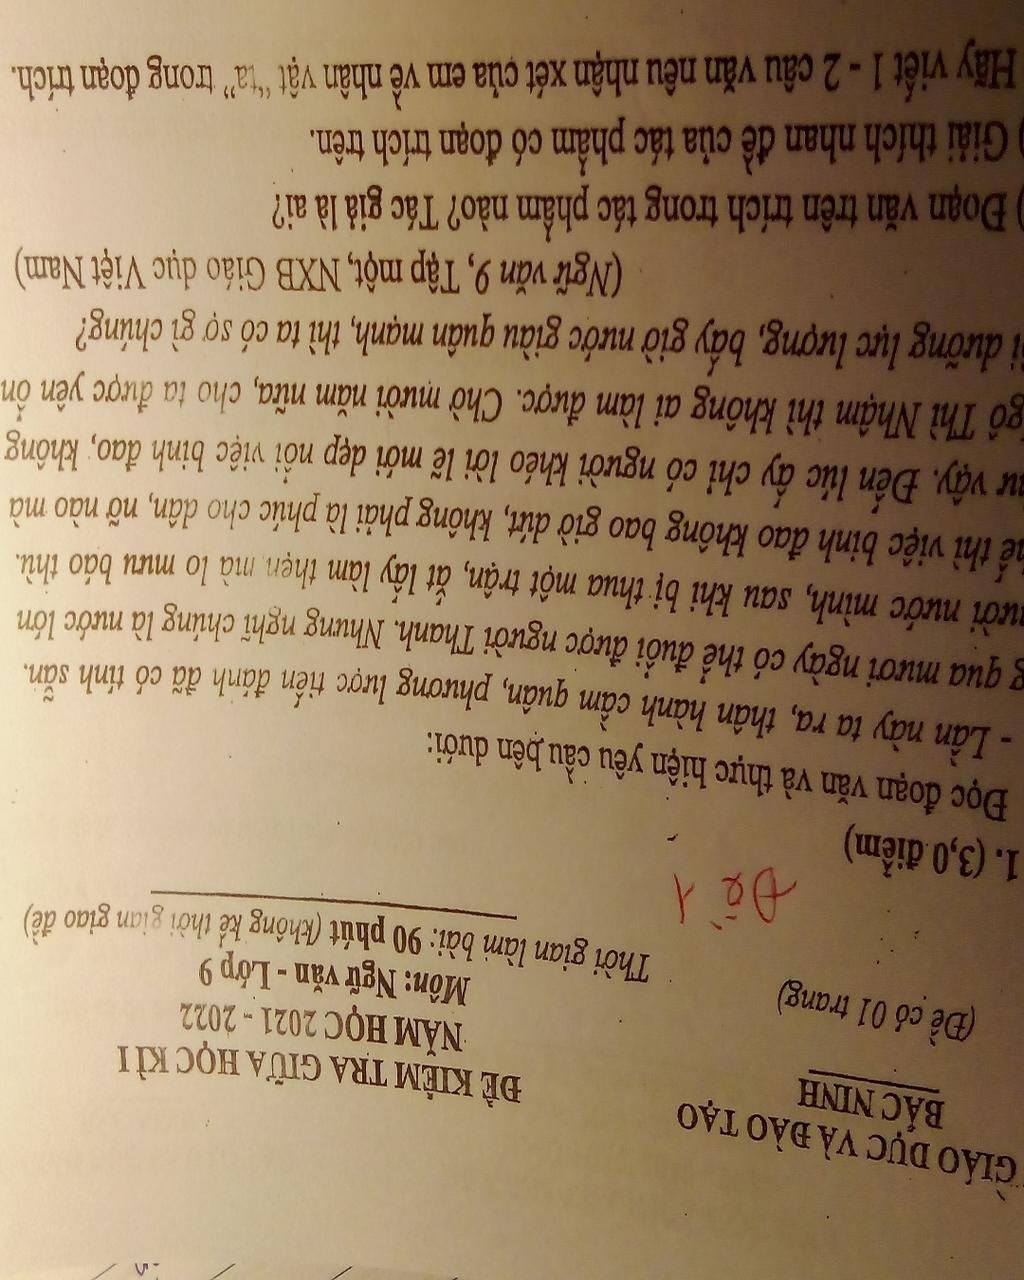 GIÁO DỤC VÀ ĐÀO TẠO
BẮC NINH
(Đề có 01 trang)
ĐỀ KIỂM TRA GIỮA HỌC KÌ I
NĂM HỌC 2021 - 2022
Môn: Ngữ văn - Lớp 9
Thời gian làm bài: 90 phút (không kể thời gian giao đề)
Đề 1
1. (3,0 điểm)
Đọc đoạn văn và thực hiện yêu cầu bên dưới:
- Lần này ta ra, thân hành cầm quân, phương lược tiến đánh đã có tính sẵn.
qua mươi ngày có thể đuổi được người Thanh. Nhưng nghĩ chúng là nước lớn
nước mình, sau khi bị thua một trận, ắt lấy làm thẹn mà lo mưu báo thù.
thì việc binh đao không bao giờ dứt, không phải là phúc cho dân, nỡ nào mà
vậy. Đến lúc ấy chỉ có người khéo lời lẽ mới dẹp nổi việc binh đao, không
Thì Nhậm thì không ai làm được. Chờ mười năm nữa, cho ta được yên ổn
dưỡng lực lượng, bấy giờ nước giàu quân mạnh, thì ta có sợ gì chúng?
(Ngữ văn 9, Tập một, NXB Giáo dục Việt Nam)
) Đoạn văn trên trích trong tác phẩm nào? Tác giả là ai?
) Giải thích nhan đề của tác phẩm có đoạn trích trên.
Hãy viết 1 - 2 câu văn nêu nhận xét của em về nhân vật "ta" trong đoạn trích.